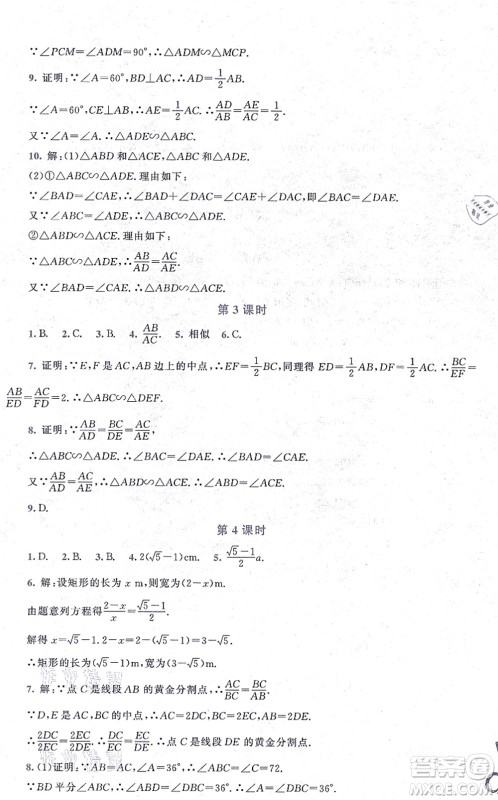 ∵∠PCM=∠ADM=90°,∴△ADM∽△MCP.
9. 证明:∵∠A=60°,BD⊥AC,∴AD=1/2 AB.
∵∠A=60°,CE⊥AB,∴AE=1/2 AC.∴AD/AB=AE/AC=1/2.
又∵∠A=∠A,∴△ADE∽△ABC.
10. 解:(1)△ABD和△ACE,△ABC和△ADE.
(2)①△ABC∽△ADE.理由如下:
∵∠BAD=∠CAE,∴∠BAD+∠DAC=∠DAC+∠CAE,即∠BAC=∠DAE.
又∵∠ABC=∠ADE,∴△ABC∽△ADE.
②△ABD∽△ACE.理由如下:
∵△ABC∽△ADE,∴AB/AD=AC/AE.
又∵∠BAD=∠CAE,∴△ABD∽△ACE.
第3课时
1.B. 2.C. 3.B. 4. AB/AC. 5.相似 6.C.
7. 证明:∵E,F是AC,AB边上的中点,∴EF=1/2 BC,同理得ED=1/2 AB,DF=1/2 AC.∴BC/EF=
AB/ED=AC/FD=2.∴△ABC∽△DEF.
8. 证明:∵AB/AD=BC/DE=AC/AE,
∴△ABC∽△ADE.∴∠BAC=∠DAE.∴∠BAD=∠CAE.
又∵AB/AD=AC/AE,∴AB/AC=AD/AE.∴△ABD∽△ACE.
9.D.
第4课时
1.D. 2.B. 3.B. 4.2(√5-1)cm. 5. (√5-1)/2 a.
6. 解:设矩形的长为x m,则宽为(2-x)m.
由题意列方程得(2-x)/x=(√5-1)/2.
解得x=√5-1.2-x=2-(√5-1)=3-√5.
∴矩形的长为(√5-1)m,宽为(3-√5)m.
7. 证明:∵点C是线段AB的黄金分割点,∴AC/BC=BC/AB.
∵D,E是AC,BC的中点,∴AC=2DC,BC=2EC,AB=2DE.
∴2DC/2EC=2EC/2DE.∴DC/EC=EC/DE.∴点C是线段DE的黄金分割点.
8.(1)证明:∵AB=AC,∠A=36°,∴∠ABC=∠C=72.
∵BD平分∠ABC,∴∠ABD=∠CBD=36°.